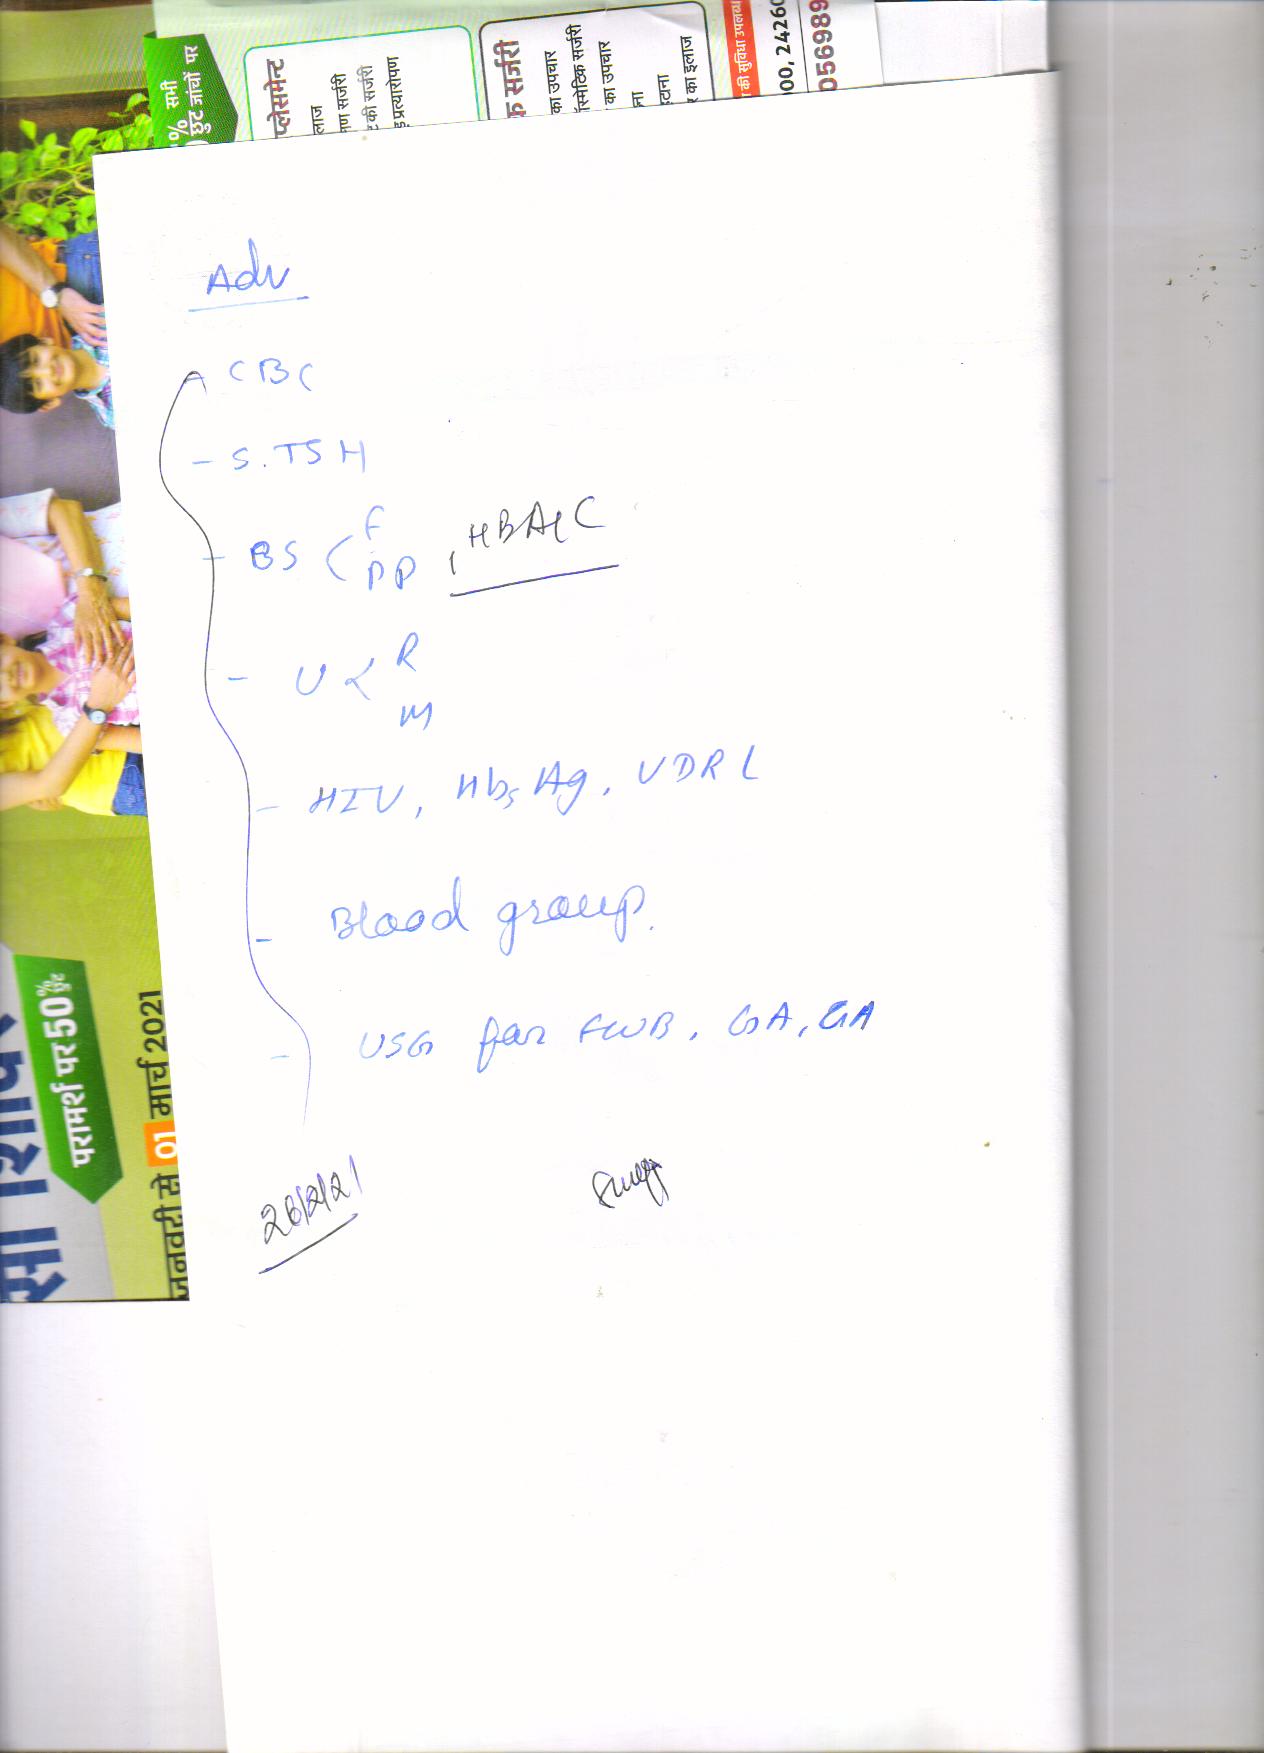 % सभी
छुट जांचों पर
प्लेसमेन्ट
लाज
की सर्जरी
प्रत्यारोपण
क सर्जरी
का उपचार
स्मेटिक सर्जरी
का उपचार
का इलाज
की सुविधा उपलब्ध
000, 24260
056989
Adv
CBC
- S.TSH
- BS < F
PP , HBA1C
- U < R
M
- HIV, HbsAg, VDRL
- Blood group.
- USG for FWB, GA, EA
26/2/21
परामर्श पर 50% छुट
जनवरी से 01 मार्च 2021